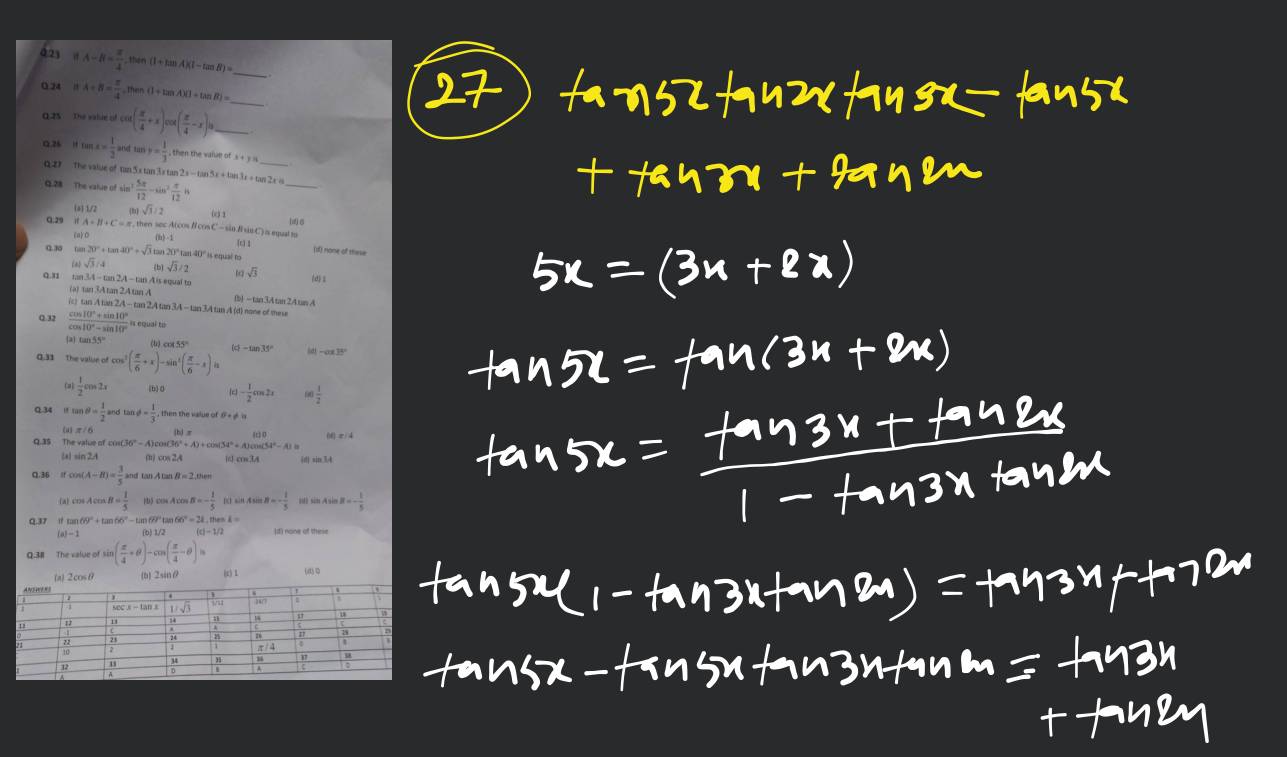 Q.23 If A−B=π/4, then (1+tan A)(1−tan B)=______.
Q.24 If A+B=π/4, then (1+tan A)(1+tan B)=______.
Q.25 The value of cot(π/4+x)cot(π/4−x) is ______.
Q.26 If tan x=1/2 and tan y=1/3, then the value of x+y is ______.
Q.27 The value of tan 5x tan 3x tan 2x − tan 5x + tan 3x + tan 2x is ______
Q.28 The value of sin² 5π/12 − sin² π/12 is
(a) 1/2 (b) √3/2 (c) 1 (d) 0
Q.29 If A+B+C=π, then sec A(cos B cos C − sin B sin C) is equal to
(a) 0 (b) -1 (c) 1 (d) none of these
Q.30 tan 20°+tan 40°+√3 tan 20° tan 40° is equal to
(a) √3/4 (b) √3/2 (c) √3 (d) 1
Q.31 tan 3A−tan 2A−tan A is equal to
(a) tan 3A tan 2A tan A (b) −tan 3A tan 2A tan A
(c) tan A tan 2A−tan 2A tan 3A−tan 3A tan A (d) none of these
Q.32 cos10°+sin10°/cos10°−sin10° is equal to
(a) tan 55° (b) cot 55° (c) −tan 35° (d) −cot 35°
Q.33 The value of cos²(π/6+x)−sin²(π/6−x) is
(a) 1/2 cos 2x (b) 0 (c) −1/2 cos 2x (d) 1/2
Q.34 If tan θ=1/2 and tan ϕ=1/3, then the value of θ+ϕ is
(a) π/6 (b) π (c) 0 (d) π/4
Q.35 The value of cos(36°−A)cos(36°+A)+cos(54°+A)cos(54°−A) is
(a) sin 2A (b) cos 2A (c) cos 3A (d) sin 3A
Q.36 If cos(A−B)=3/5 and tan A tan B=2, then
(a) cos A cos B=1/5 (b) cos A cos B=−1/5 (c) sin A sin B=−1/5 (d) sin A sin B=−1/5
Q.37 If tan 69°+tan 66°−tan 69° tan 66°=2k, then k=
(a) −1 (b) 1/2 (c) −1/2 (d) none of these
Q.38 The value of sin(π/4+θ)−cos(π/4−θ) is
(a) 2cos θ (b) 2sin θ (c) 1 (d) 0
ANSWERS
sec x − tan x 1/√3
π/4
27 tan5x tan2x tan3x − tan5x
+ tan3x + tan2x
5x = (3x + 2x)
tan5x = tan(3x + 2x)
tan5x = tan3x + tan2x
1 − tan3x tan2x
tan5x(1 − tan3x tan2x) = tan3x + tan2x
tan5x − tan5x tan3x tan2x = tan3x
+ tan2x